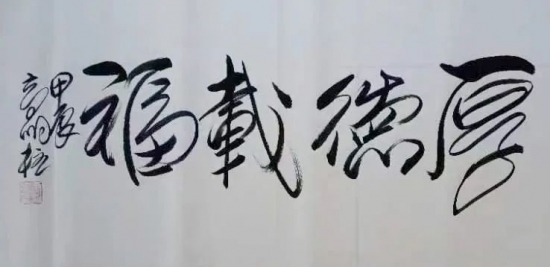 厚德載福
甲辰